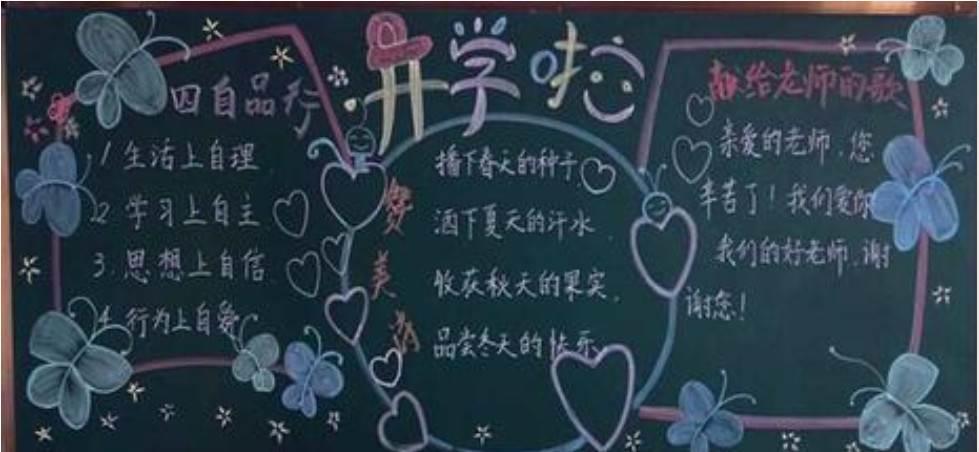 开学啦
四自品行
1 生活上自理
2 学习上自主
3.思想上自信
4.行为上自爱
播下春天的种子,
洒下夏天的汗水,
收获秋天的果实,
品尝冬天的快乐
梦
美
献给老师的歌
亲爱的老师,您
辛苦了!我们爱你
我们的好老师,谢
谢您!